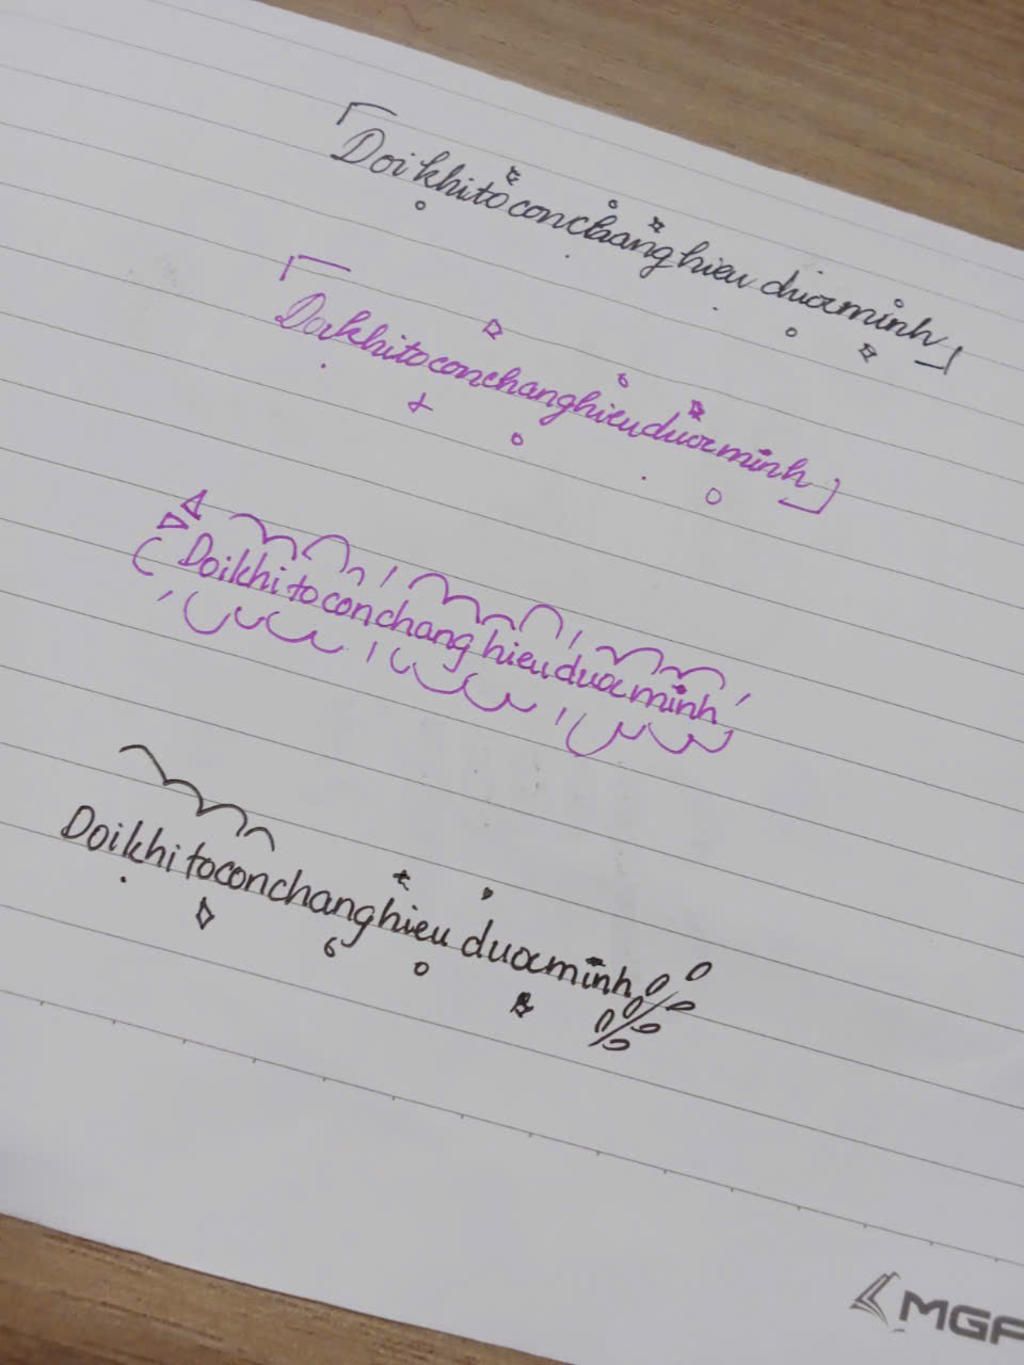 Doi khi to con chang hieu duoc minh
Doi khi to con chang hieu duoc minh
Doi khi to con chang hieu duoc minh
Doi khi to con chang hieu duoc minh